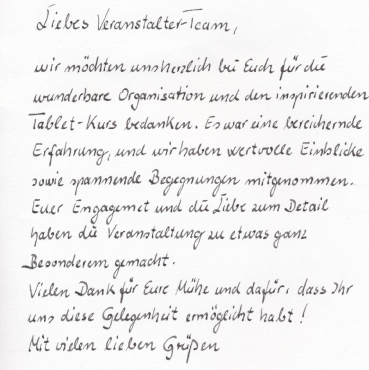 Liebes Veranstalter-Team,
wir möchten uns herzlich bei Euch für die
wunderbare Organisation und den inspirierenden
Tablet-Kurs bedanken. Es war eine bereichernde
Erfahrung, und wir haben wertvolle Einblicke
sowie spannende Begegnungen mitgenommen.
Euer Engagemet und die Liebe zum Detail
haben die Veranstaltung zu etwas ganz
Besonderem gemacht.
Vielen Dank für Eure Mühe und dafür, dass Ihr
uns diese Gelegenheit ermöglicht habt!
Mit vielen lieben Grüßen